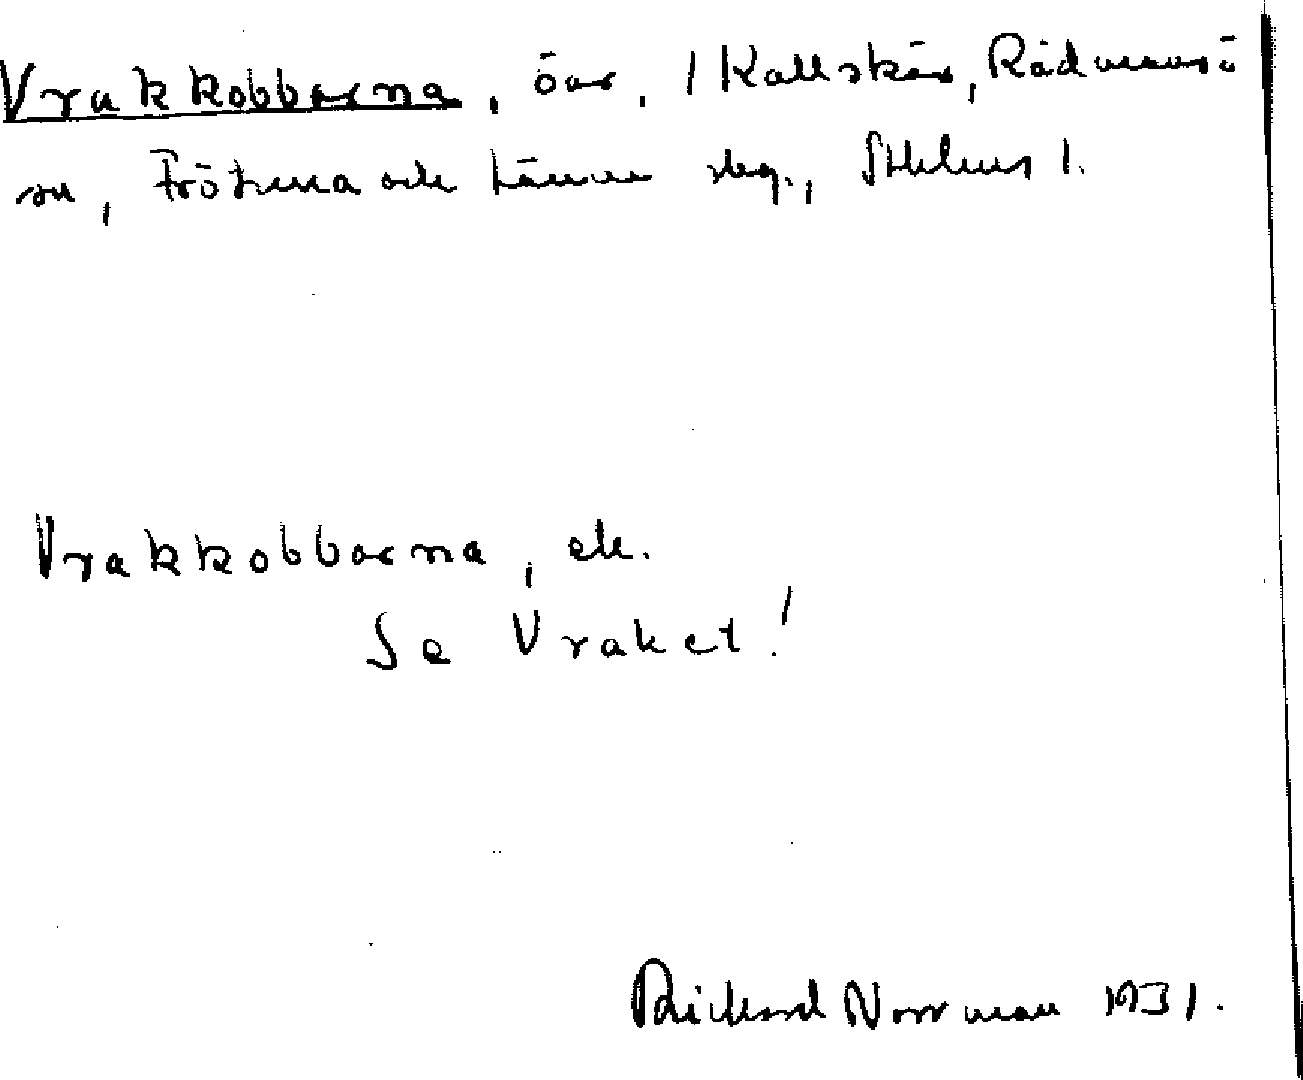 Vrakkobbarna, öar, 1 Kallskär, Rådmansö
sn, Frötuna och Länna skg., Sthlms l.
Vrakkobbarna, ek.
Se Vraket!
Rickard Norrman 1931.